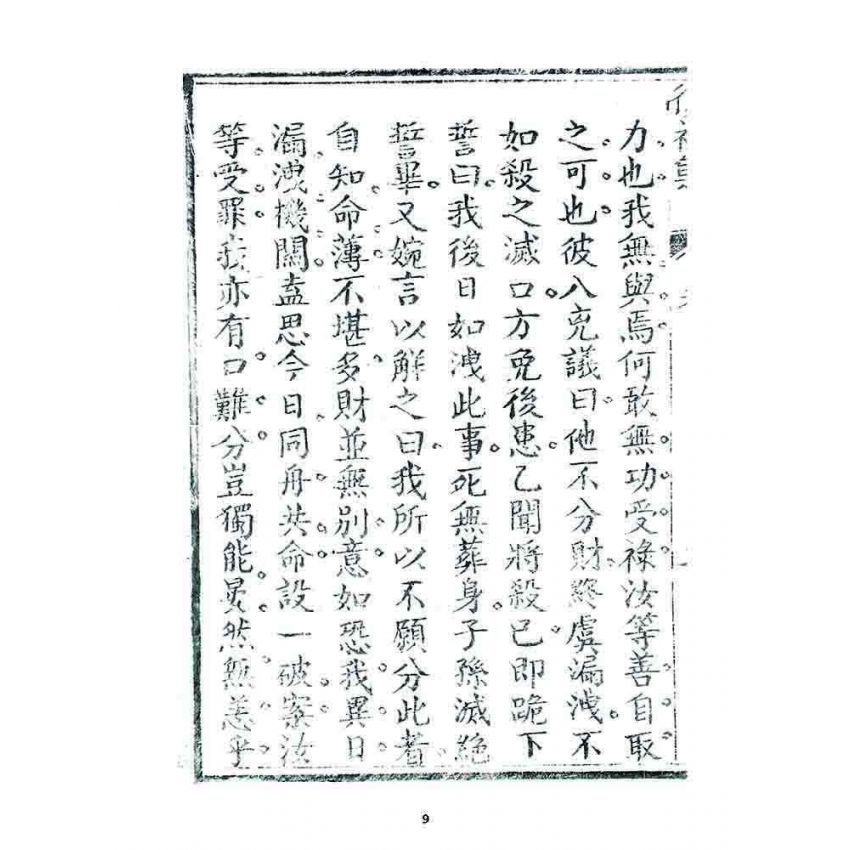 力也我無與焉何敢無功受祿汝等善自取
之可也彼八兇議曰他不分財終虞漏洩不
如殺之滅口方免後患乙聞將殺已即跪下
誓曰我後日如洩此事死無葬身子孫滅絕
誓畢又婉言以解之曰我所以不願分此者
自知命薄不堪多財並無別意如恐我異日
漏洩機關盍思今日同舟共命設一破案汝
等受罪我亦有口難分豈獨能晏然無恙乎
9